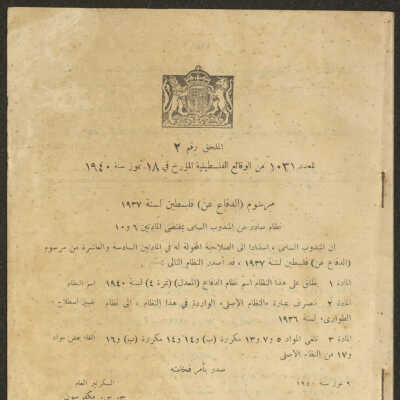 الملحق رقم ٢
للعدد ١٠٣١ من الوقائع الفلسطينية المؤرخ في ١٨ تموز سنة ١٩٤٠
مرسوم (الدفاع عن) فلسطين لسنة ١٩٣٧
نظام صادر عن المندوب السامي بمقتضى المادتين ٦ و١٠
ان المندوب السامي، استنادا الى الصلاحية المخولة له في المادتين السادسة والعاشرة من مرسوم
(الدفاع عن) فلسطين لسنة ١٩٣٧، قد أصدر النظام التالي :
المادة ١ يطلق على هذا النظام اسم نظام الدفاع (المعدل) (نمرة ٤) لسنة ١٩٤٠ اسم النظام
المادة ٢ تنصرف عبارة «النظام الأصلي» الواردة في هذا النظام، الى نظام تفسير اصطلاح
الطوارئ، لسنة ١٩٣٦
المادة ٣ تلغى المواد ٥ و٧ و١٣ مكررة (ب) و١٤ و١٤ مكررة (ب) و١٦ الغاء بعض مواد
و١٧ من النظام الأصلي
صدر بأمر فخامته
٩ تموز سنة ١٩٤٠ السكرتير العام
مكفرسون